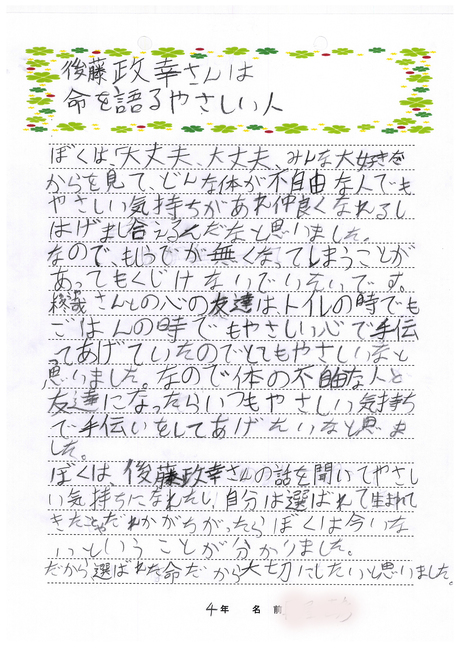 後藤政幸さんは
命を語るやさしい人
ぼくは、「大丈夫、大丈夫、みんな大好きだ
からを見て、どんな体が不自由な人でも
やさしい気持ちがあれ仲良くなれるし
はげまし合えるんだなと思いました。
なので、もしうでが無くなってしまうことが
あってもくじけないでいたいです。
さんとの心の友達はトイレの時でも
ごはんの時でもやさしい心で手伝
ってあげていたのでとてもやさしいなと
思いました。なので体の不自由な人と
友達になったらいつもやさしい気持ち
で手伝いをしてあげたいなと思いま
した。
ぼくは、後藤政幸さんの話を聞いてやさし
い気持ちになれたし、自分は選ばれて生まれて
きたことやだれかがちがったらぼくは今いな
いということが分かりました。
だから選ばれた命だから大切にしたいと思いました。
4年 名前